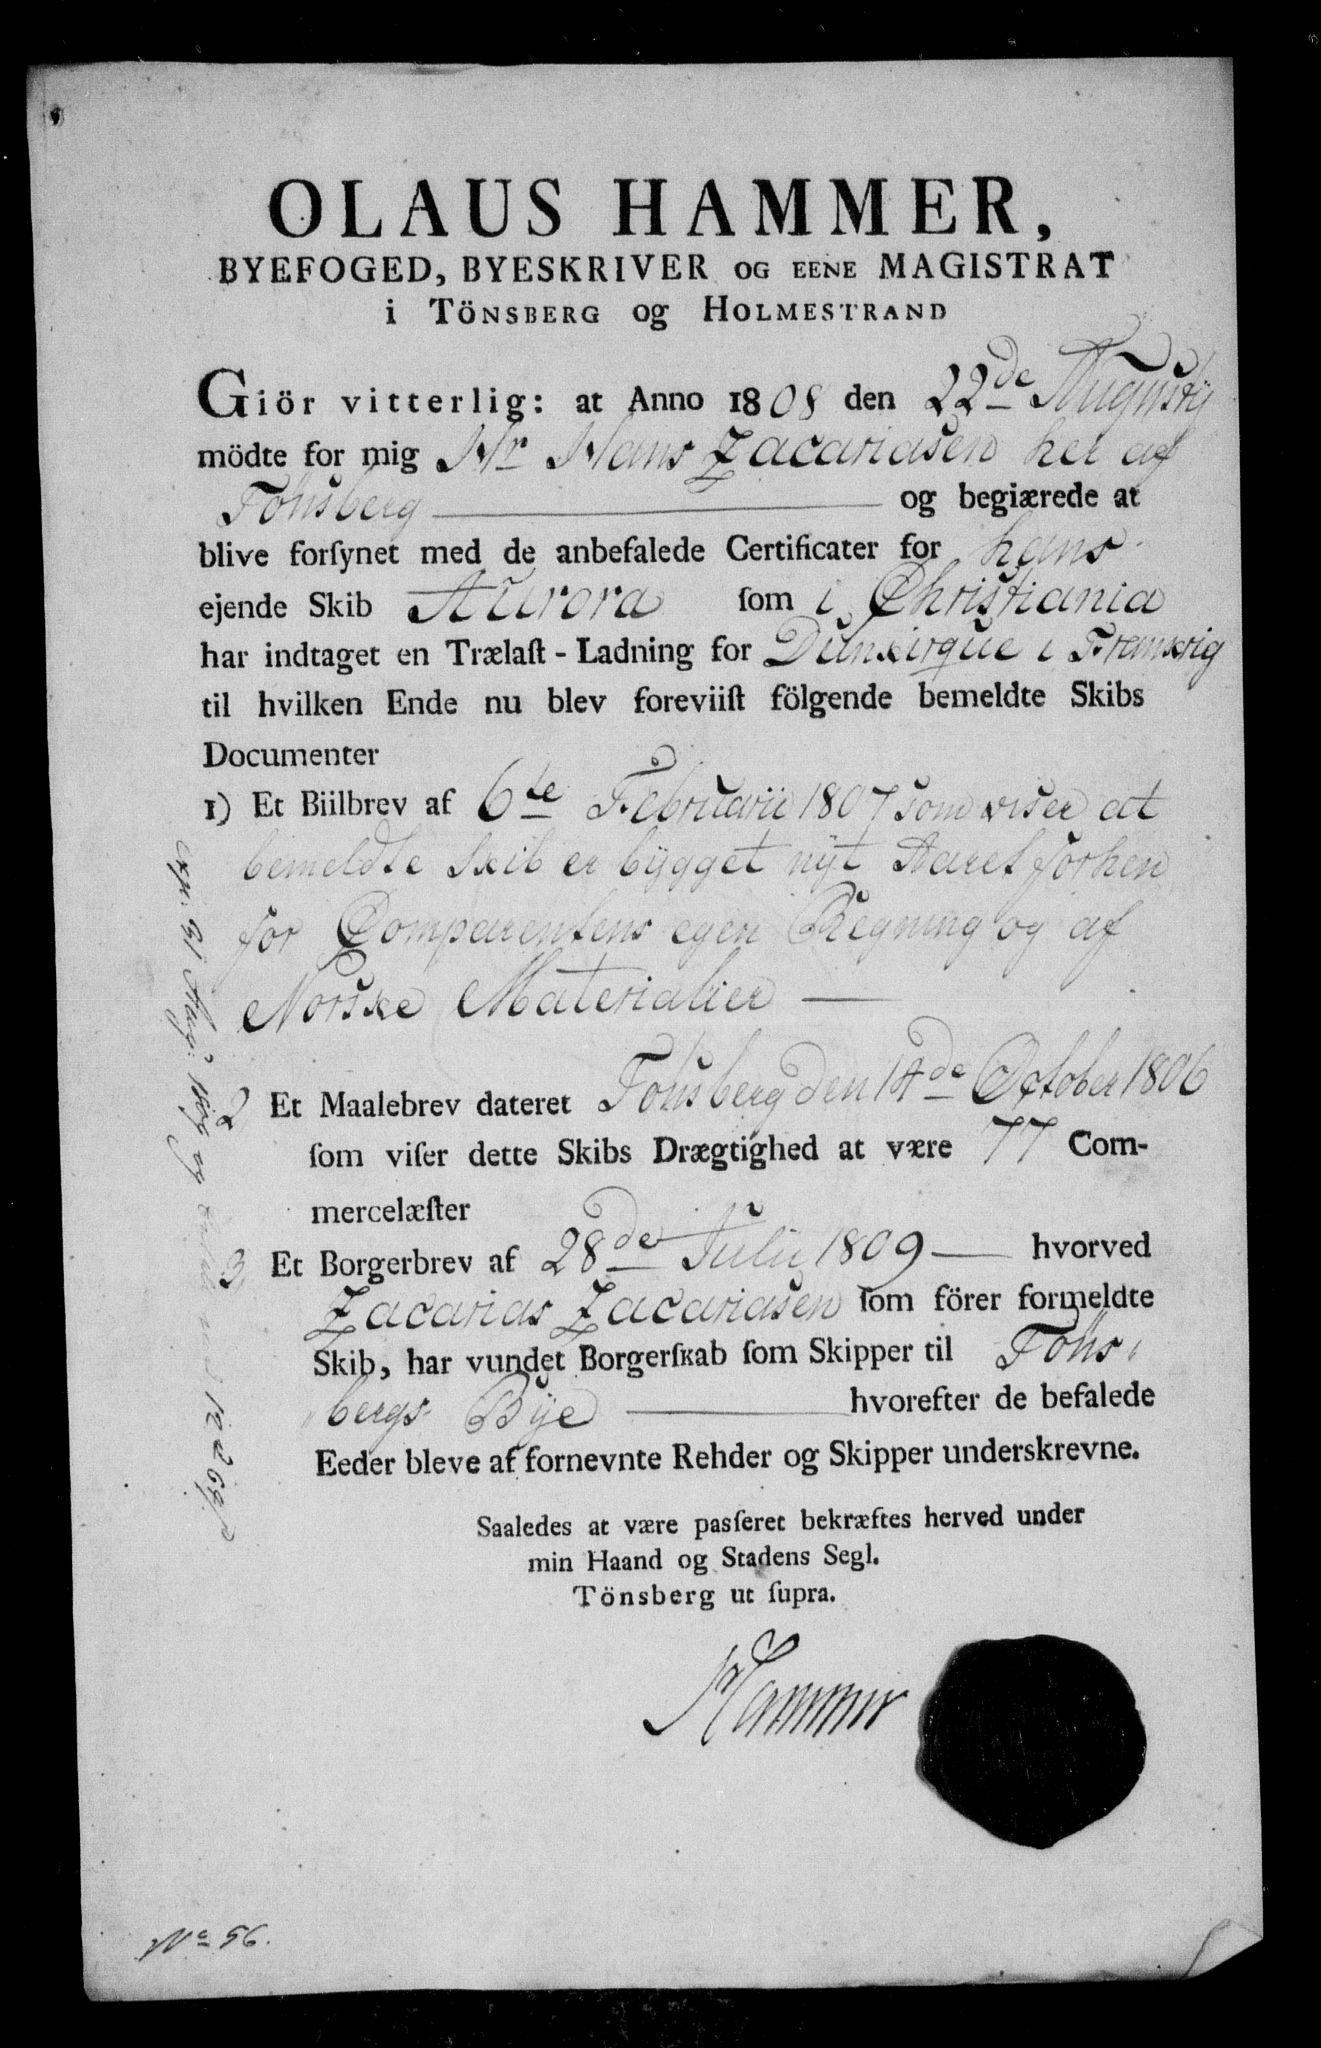 OLAUS HAMMER,
BYEFOGED, BYESKRIVER OG EENE MAGISTRAT
i TÖNSBERG og HOLMESTRAND
Giör vitterlig: at Anno 1808 den 22de Augustij
mödte for mig Hr Hans Zacariasen her af
Tönsberg og begiærede at
blive forſynet med de anbefalede Certificater for hans
ejende Skib Aurora ſom i Christiania
har indtaget en Trælaſt - Ladning for Dunkirque i Frankrig
til hvilken Ende nu blev foreviiſt fölgende bemeldte Skibs
Documenter
1) Et Biilbrev af 6te Februarii 1807 som viser at
bemeldte Skib er bygget nyt Aaret forhen
for Comparentens egen Regning og af
Norske Materialier
2 Et Maalebrev dateret Tönsberg den 14de October 1806
ſom viſer dette Skibs Drægtighed at være 77 Com-
mercelæſter
3 Et Borgerbrev af 28de Julii 1809 hvorved
Zacarias Zacariasen ſom förer formeldte
Skib, har vundet Borgerſkab ſom Skipper til Töns
bergs Bye hvorefter de befalede
Eeder bleve af fornevnte Rehder og Skipper underskrevne.
Saaledes at være paſſeret bekræftes herved under
min Haand og Stadens Segl.
Tönsberg ut ſupra.
Hammer
No 56.